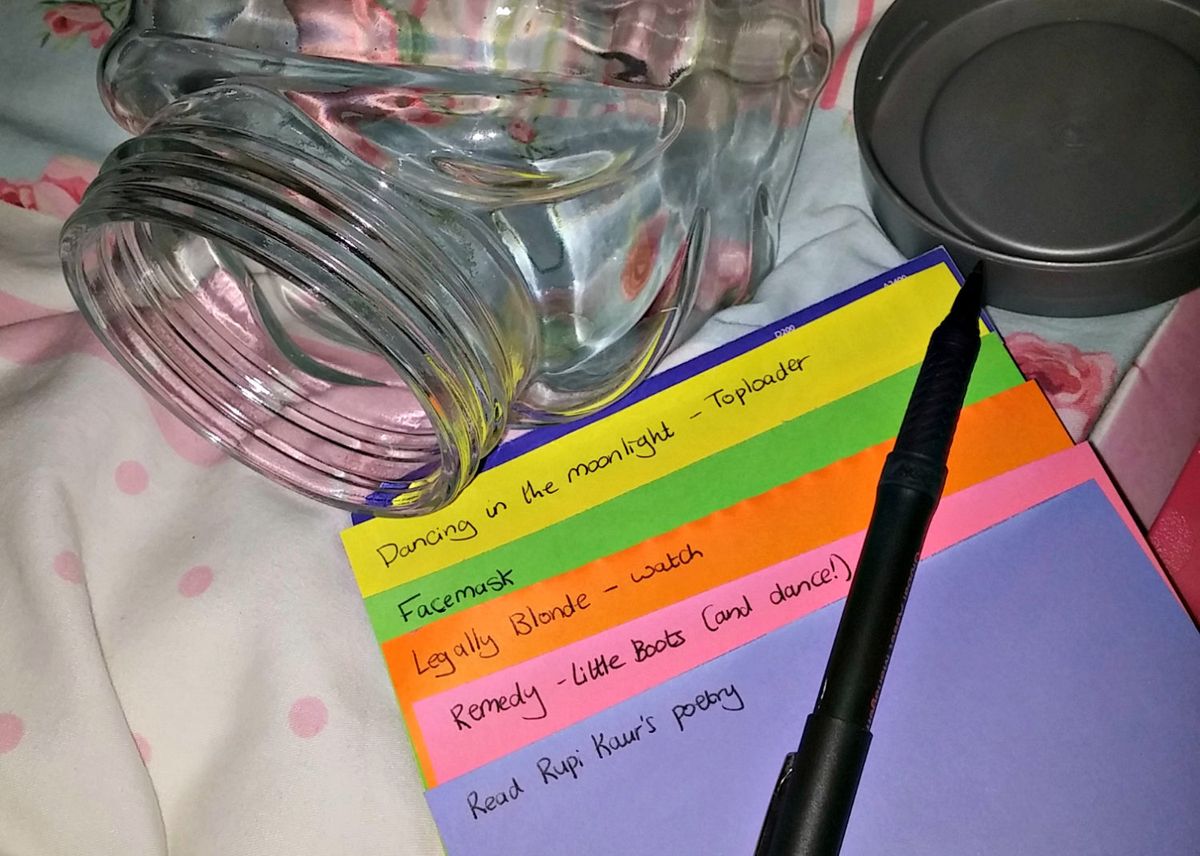 D200
Dancing in the moonlight - Toploader
Facemask
Legally Blonde - watch
Remedy - Little Boots (and dance!)
Read Rupi Kaur's poetry